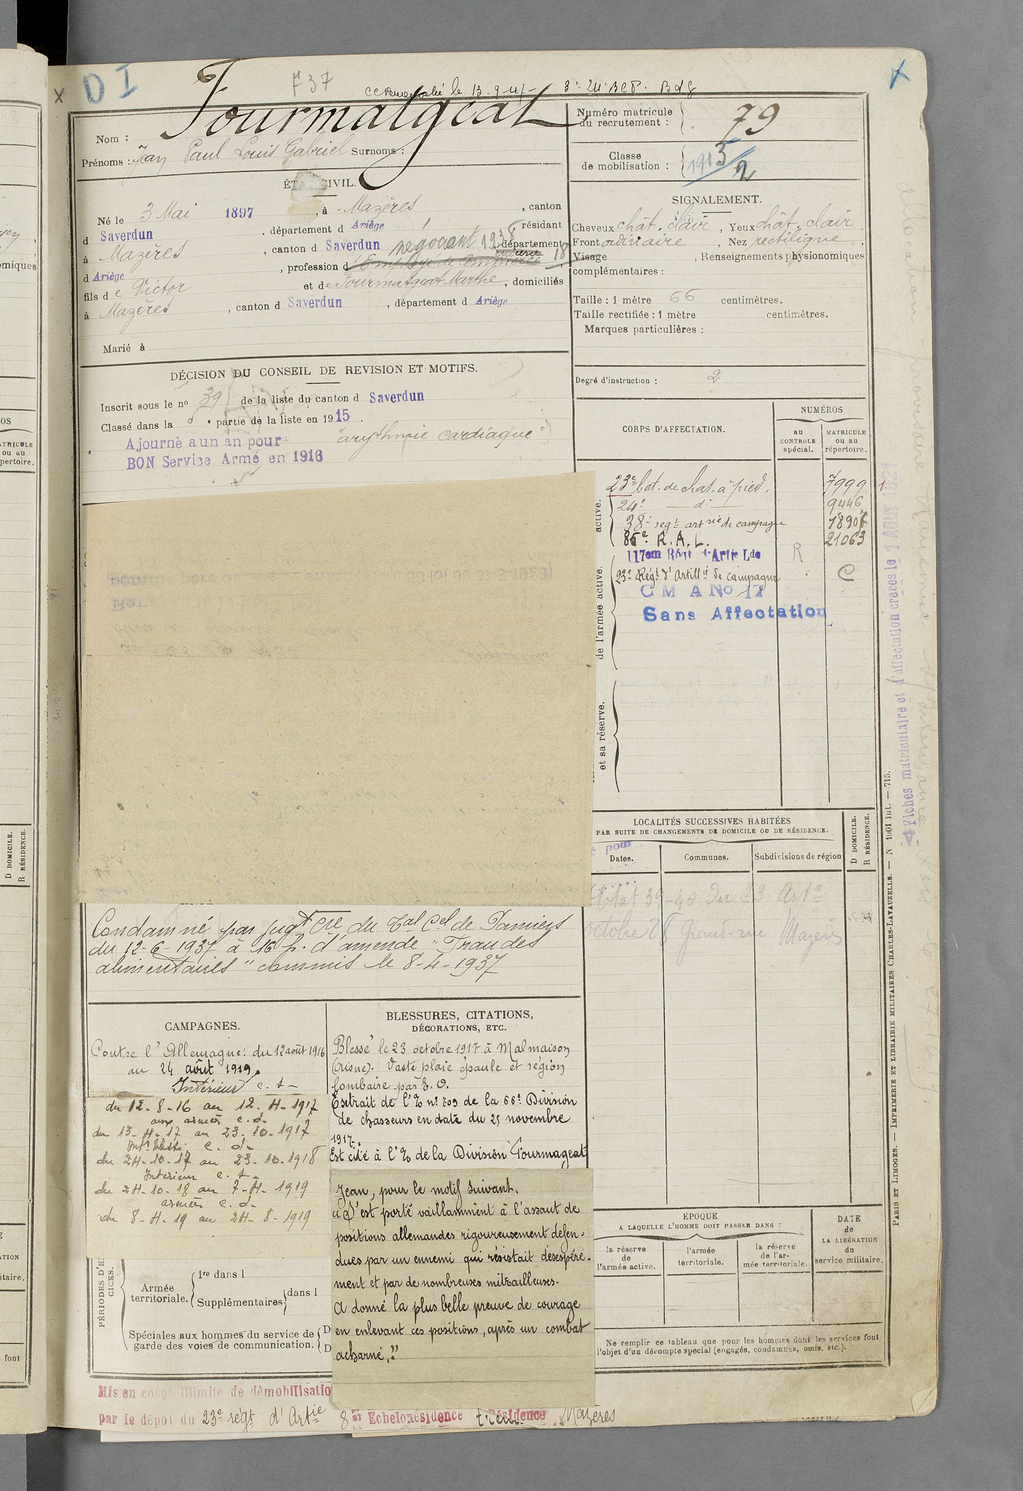 D I
F37
Fourmalgeat
Nom :
Prénoms : Jean Paul Louis Gabriel Surnoms :
Numéro matricule
du recrutement :
79
Classe
de mobilisation :
1915/2
ÉTAT CIVIL.
Né le 3 Mai 1897, à Mazères, canton
d Saverdun, département d Ariège, résidant
à Mazères, canton d Saverdun négociant 1938, département
d Ariège, profession d Employé de Commerce
fils de Victor et de Fourmalgeat Marthe, domiciliés
à Mazères, canton d Saverdun, département d Ariège
Marié à
SIGNALEMENT.
Cheveux chât. clair, Yeux chât. clair
Front ordinaire, Nez rectiligne,
Visage , Renseignements physionomiques
complémentaires :
Taille : 1 mètre 66 centimètres.
Taille rectifiée : 1 mètre centimètres.
Marques particulières :
Degré d'instruction : 2
DÉCISION DU CONSEIL DE REVISION ET MOTIFS.
Inscrit sous le no 39 de la liste du canton d Saverdun
Classé dans la partie de la liste en 1915.
Ajourné a un an pour "arythmie cardiaque"
BON Service Armé en 1916
CORPS D'AFFECTATION.
NUMÉROS
AU
CONTROLE
spécial.
MATRICULE
OU AU
répertoire.
23e bat. de chas. à pied. 7999
24e d° 9446
38e regt artrie de campagne 18907
86e R.A.L. 21063
117em Régt d'Artie Lde R
23e Régt d'Artillie de campagne C
C M A No 17
Sans Affectation
active.
de l'armée active.
et sa réserve.
Fiches matriculaire et d'affectation créées le 1 AOUT 1921
LOCALITÉS SUCCESSIVES HABITÉES
PAR SUITE DE CHANGEMENTS DE DOMICILE OU DE RÉSIDENCE.
D DOMICILE.
R RÉSIDENCE.
Dates.
Communes.
Subdivisions de région
Etat 39-40 du 23 Artie
octobre 28 Grand-rue Mazères
Condamné par jugt cre du Tal Cel de Pamiers
du 12-6-1937 à 16 f. d'amende "Fraudes
alimentaires" commis le 8-4-1937
CAMPAGNES.
Contre l'Allemagne: du 12 août 1916
au 24 août 1919.
Intérieur c. s-
du 12-8-16 au 12-4-1917
aux armées c. d-
du 13-4-17 au 23-10-1917
du 24-10-17 au 23-10-1918
Intérieur c. s-
du 24-10-18 au 7-4-1919
armées c. d-
du 8-4-19 au 24-8-1919
BLESSURES, CITATIONS,
DÉCORATIONS, ETC.
Blessé le 23 octobre 1917 à Malmaison
(Aisne). Vaste plaie épaule et région
lombaire par E. O.
Extrait de l'O n° 209 de la 66e Division
de chasseurs en date du 25 novembre
1917.
Est cité à l'O de la Division Fourmageat
Jean, pour le motif suivant.
"S'est porté vaillamment à l'assaut de
positions allemandes rigoureusement défen-
dues par un ennemi qui résistait désespéré-
ment et par de nombreuses mitrailleuses.
A donné la plus belle preuve de courage
en enlevant ces positions, après un combat
acharné."
PÉRIODES D'EXERCICES.
Armée
territoriale.
1re dans l
Supplémentaires dans l
Spéciales aux hommes du service de
garde des voies de communication.
ÉPOQUE
A LAQUELLE L'HOMME DOIT PASSER DANS :
la réserve
de
l'armée active.
l'armée
territoriale.
la réserve
de l'ar-
mée territoriale.
DATE
de
LA LIBÉRATION
du
service militaire.
Ne remplir ce tableau que pour les hommes dont les services font
l'objet d'un décompte spécial (engagés, condamnés, omis, etc.).
Mis en congé illimité de démobilisatio
par le dépôt du 23e régt d'Artie 8 er Echelon résidence Résidence Mazères
PARIS ET LIMOGES. — IMPRIMERIE ET LIBRAIRIE MILITAIRES CHARLES-LAVAUZELLE. — N 1601 Int. — 715.